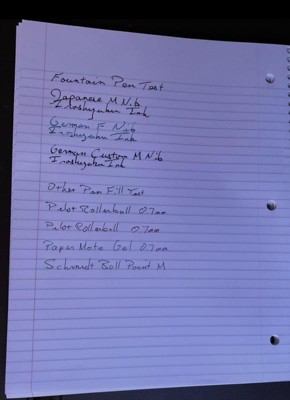 Fountain Pen Test
Japanese M Nib
Iroshizuku Ink
German F Nib
Iroshizuku Ink
German Custom M Nib
Iroshizuku Ink
Other Pen Fill Test
Pilot Rollerball 0.7mm
Pilot Rollerball 0.7mm
Paper Mate Gel 0.7mm
Schmidt Ball Point M